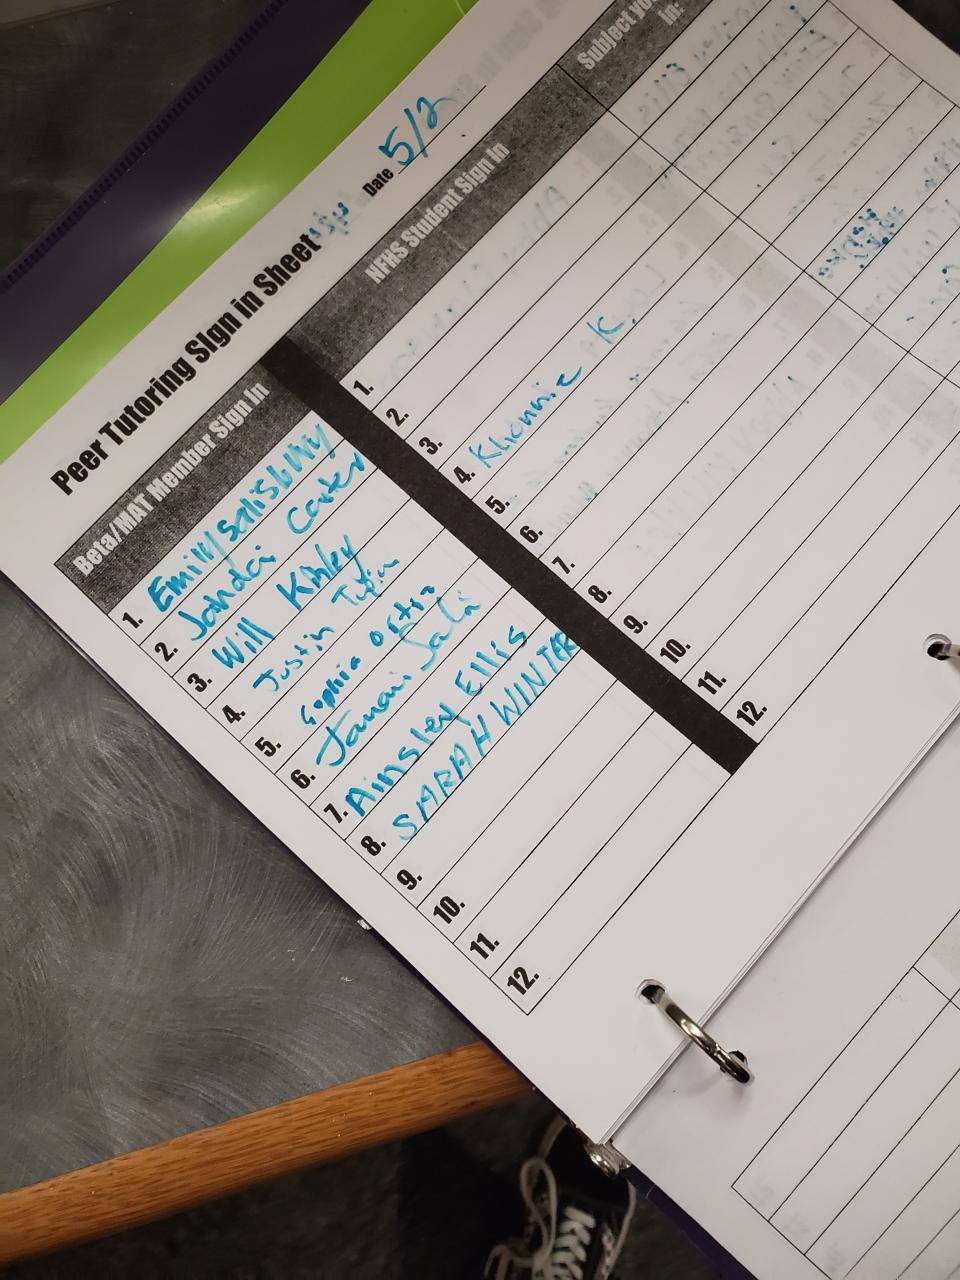 Peer Tutoring Sign in Sheet
Date 5/2
Beta/MAT Member Sign In
1. Emily Salisbury
2. Jahdai Carter
3. Will Kirby
4. Justin
5. Sophia
6. Jamari
7. Ainsley Ellis
8. SARAH WINTER
9.
10.
11.
12.
NFHS Student Sign In
1.
2.
3.
4. K
5.
6.
7.
8.
9.
10.
11.
12.
Subject
in: